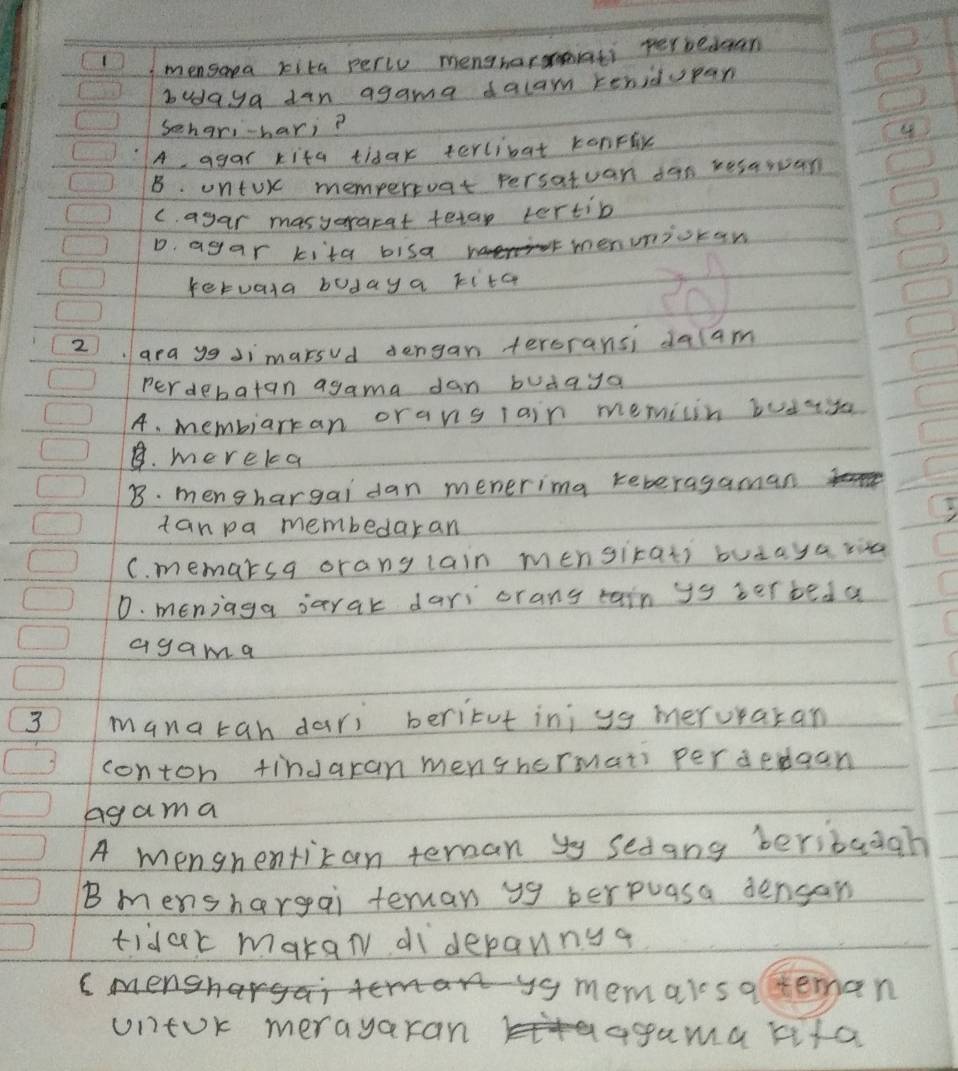 1 mengapa kita perlu menghargmati perbedaan
budaya dan agama dalam kehidupan
sehari-hari?
A. agar kita tidak terlibat konflik
B. untuk memperkuat persatuan dan kesatuan
C. agar masyarakat tetap tertib
D. agar kita bisa menunjukan
kekuata budaya kita
2. apa yg dimaksud dengan teroransi dalam
perdebatan agama dan budaya
A. membiarkan orang lain memilih budaya
B. mereka
B. menghargai dan menerima keberagaman
tanpa membedakan
C. memaksa orang lain mengikati budaya kita
D. menjaga jarak dari orang lain yg berbeda
agama
3 manakah dari berikut ini yg merupakan
contoh tindakan menghormati perdedaan
agama
A menghentikan teman yg sedang beribadah
B menghargai teman yg berpuasa dengan
tidak makan di depannya
C menghargai teman yg memaksa teman
untuk merayakan kita agama kita
4